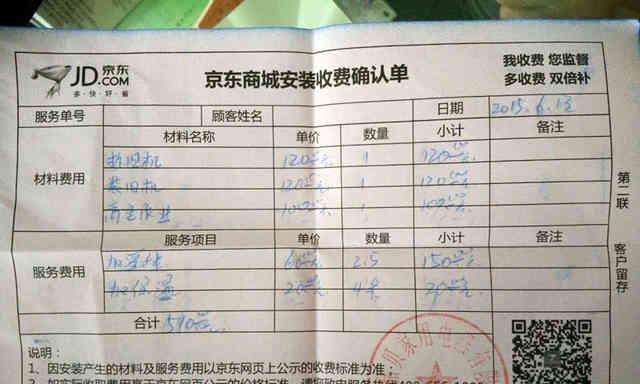 JD.COM 京东
多·快·好·省
京东商城安装收费确认单
我收费 您监督
多收费 双倍补
服务单号 顾客姓名 日期 2015.6.
材料名称 单价 数量 小计 备注
材料费用
拆旧机 120元 1 120元
装旧机 120元 1 120元
高空作业 100元 1 100元
服务项目 单价 数量 小计 备注
服务费用
60元 2.5 150元
加保温 20元 4米
合计 590元
第二联 客户留存
说明:
1、因安装产生的材料及服务费用以京东网页上公示的收费标准为准;
2、如实际收取费用高于京东网页公示的价格标准,请您致电服务热线400-656-
家用电器